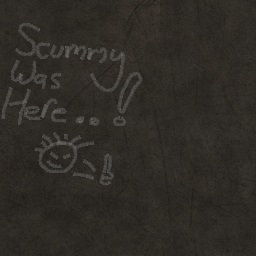 Scummy
Was
Here..!
!